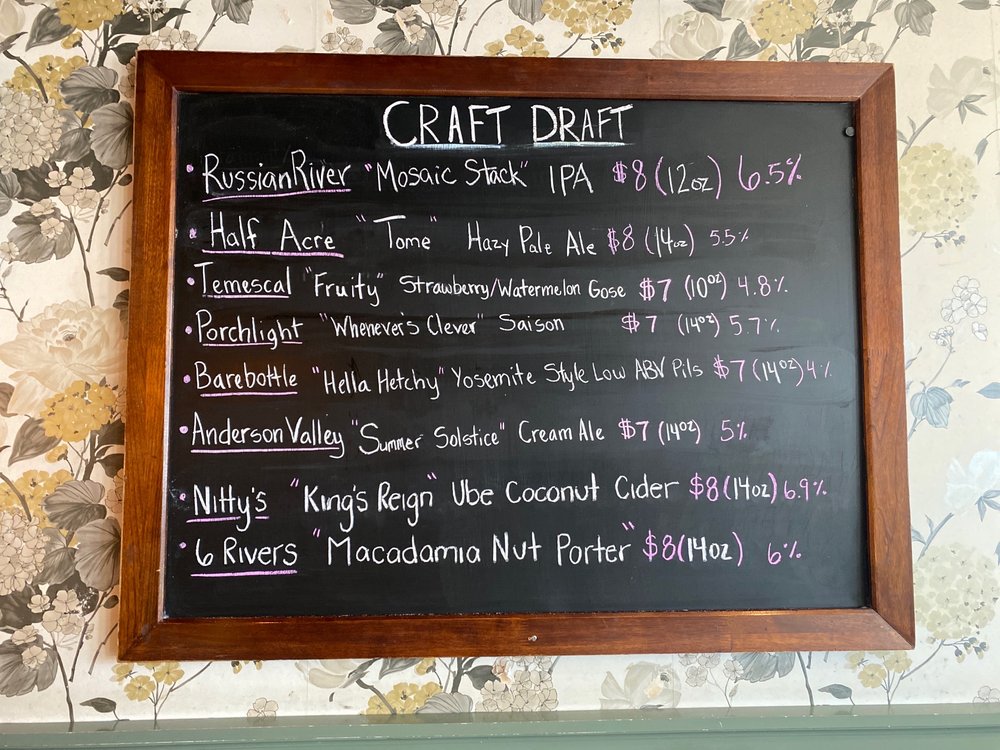 CRAFT DRAFT
• Russian River "Mosaic Stack" IPA $8 (12oz) 6.5%
• Half Acre "Tome" Hazy Pale Ale $8 (14oz) 5.5%
• Temescal "Fruity" Strawberry/Watermelon Gose $7 (10oz) 4.8%
• Porchlight "Whenever's Clever" Saison $7 (14oz) 5.7%
• Barebottle "Hella Hetchy" Yosemite Style Low ABV Pils $7 (14oz) 4%
• Anderson Valley "Summer Solstice" Cream Ale $7 (14oz) 5%
• Nitty's "King's Reign" Ube Coconut Cider $8 (14oz) 6.9%
• 6 Rivers "Macadamia Nut Porter" $8 (14oz) 6%